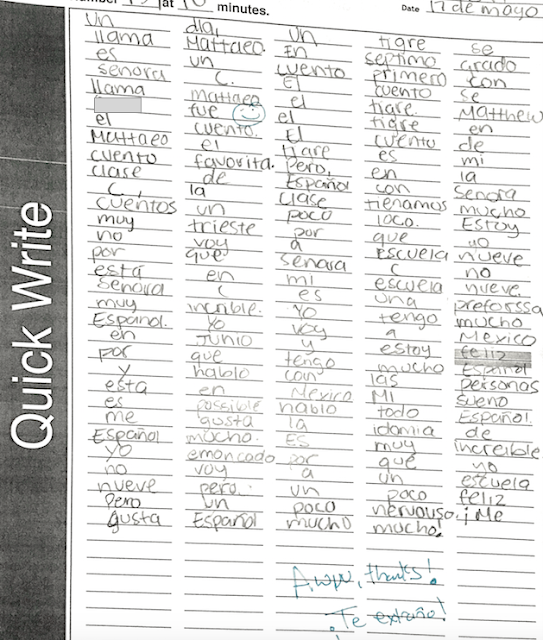 number 19 at 10 minutes. Date 17 de mayo
Quick Write
Un día, un tigre se
llama Mattaeo. En septimo grado
es un cuento primero con
señora C. El cuento se
llama Mattaeo el tigre. Matthew
fue el tigre en
el cuento. El cuento de
Mattaeo el tigre es mi
cuento favorita. Pero, en la
clase de Español con Señora
C, la clase tienamos mucho
cuentos un poco loco. Estoy
muy trieste por que yo
no voy a escuela nueve
por que señora C no
está en mi escuela nueve.
Señora C es una preforssa
muy incrible. Yo tengo mucho
Español. Yo voy a Mexico
en junio y estoy feliz
por que tengo mucho Español
y hablo con las personas
esta en Mexico. Mi sueno
es possible hablo todo Español.
me gusta la idomia de
Español mucho. Es muy increible
yo emoncado por que yo
no voy a un escuela
nueve pero un poco feliz
Pero un poco nervouso. ¡Me
gusta Español mucho mucho!
Aww, thanks!
¡Te extraño!